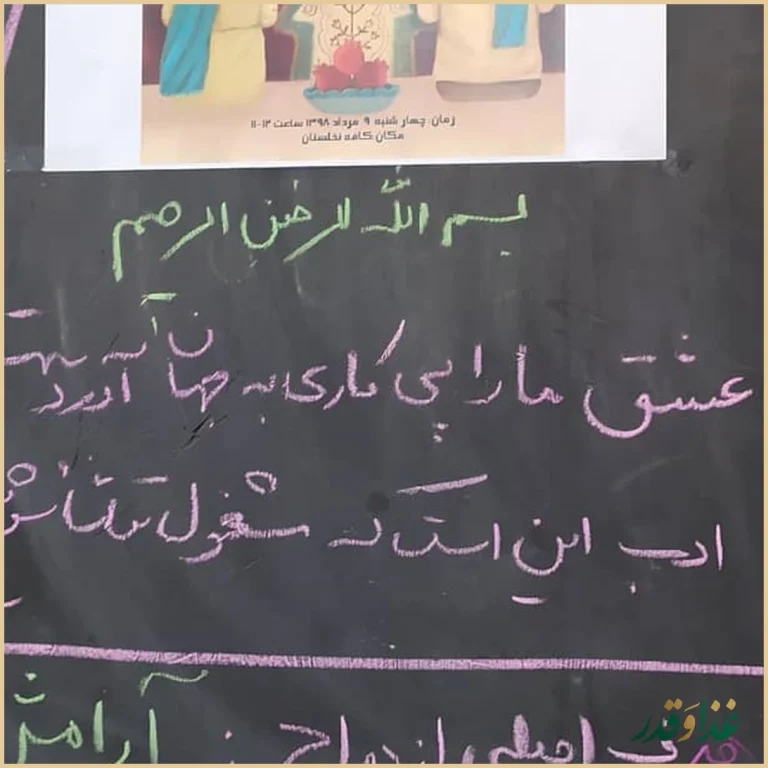 زمان: چهارشنبه ۹ مرداد ۱۳۹۸ ساعت ۱۲-۱۱
مکان: کافه نخلستان
بسم الله الرحمن الرحیم
عشق ما را پی کاری به جهان آورده
ادب این است که مشغول تماشا
اصلی ازدواج : آرامش
غذا و قدر